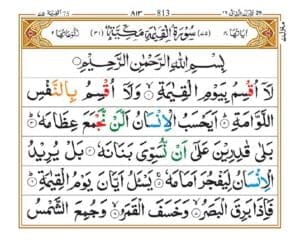 ٧٥ القيمة ٧٥ ٨١٣ 813
اٰيَاتُهَا ٤٠ (٧٥) سُوْرَةُ الْقِيٰمَةِ مَكِّيَّةٌ (٣١) رُكُوْعَاتُهَا ٢
بِسْمِ اللّٰهِ الرَّحْمٰنِ الرَّحِيْمِ
لَاۤ اُقْسِمُ بِيَوْمِ الْقِيٰمَةِ ۙ وَلَاۤ اُقْسِمُ بِالنَّفْسِ
اللَّوَّامَةِ ؕ اَيَحْسَبُ الْاِنْسَانُ اَلَّنْ نَّجْمَعَ عِظَامَهٗ ؕ
بَلٰى قٰدِرِيْنَ عَلٰۤى اَنْ نُّسَوِّىَ بَنَانَهٗ بَلْ يُرِيْدُ
الْاِنْسَانُ لِيَفْجُرَ اَمَامَهٗ ۚ يَسْـَٔلُ اَيَّانَ يَوْمُ الْقِيٰمَةِ ؕ
فَاِذَا بَرِقَ الْبَصَرُ ۙ وَخَسَفَ الْقَمَرُ ۙ وَجُمِعَ الشَّمْسُ